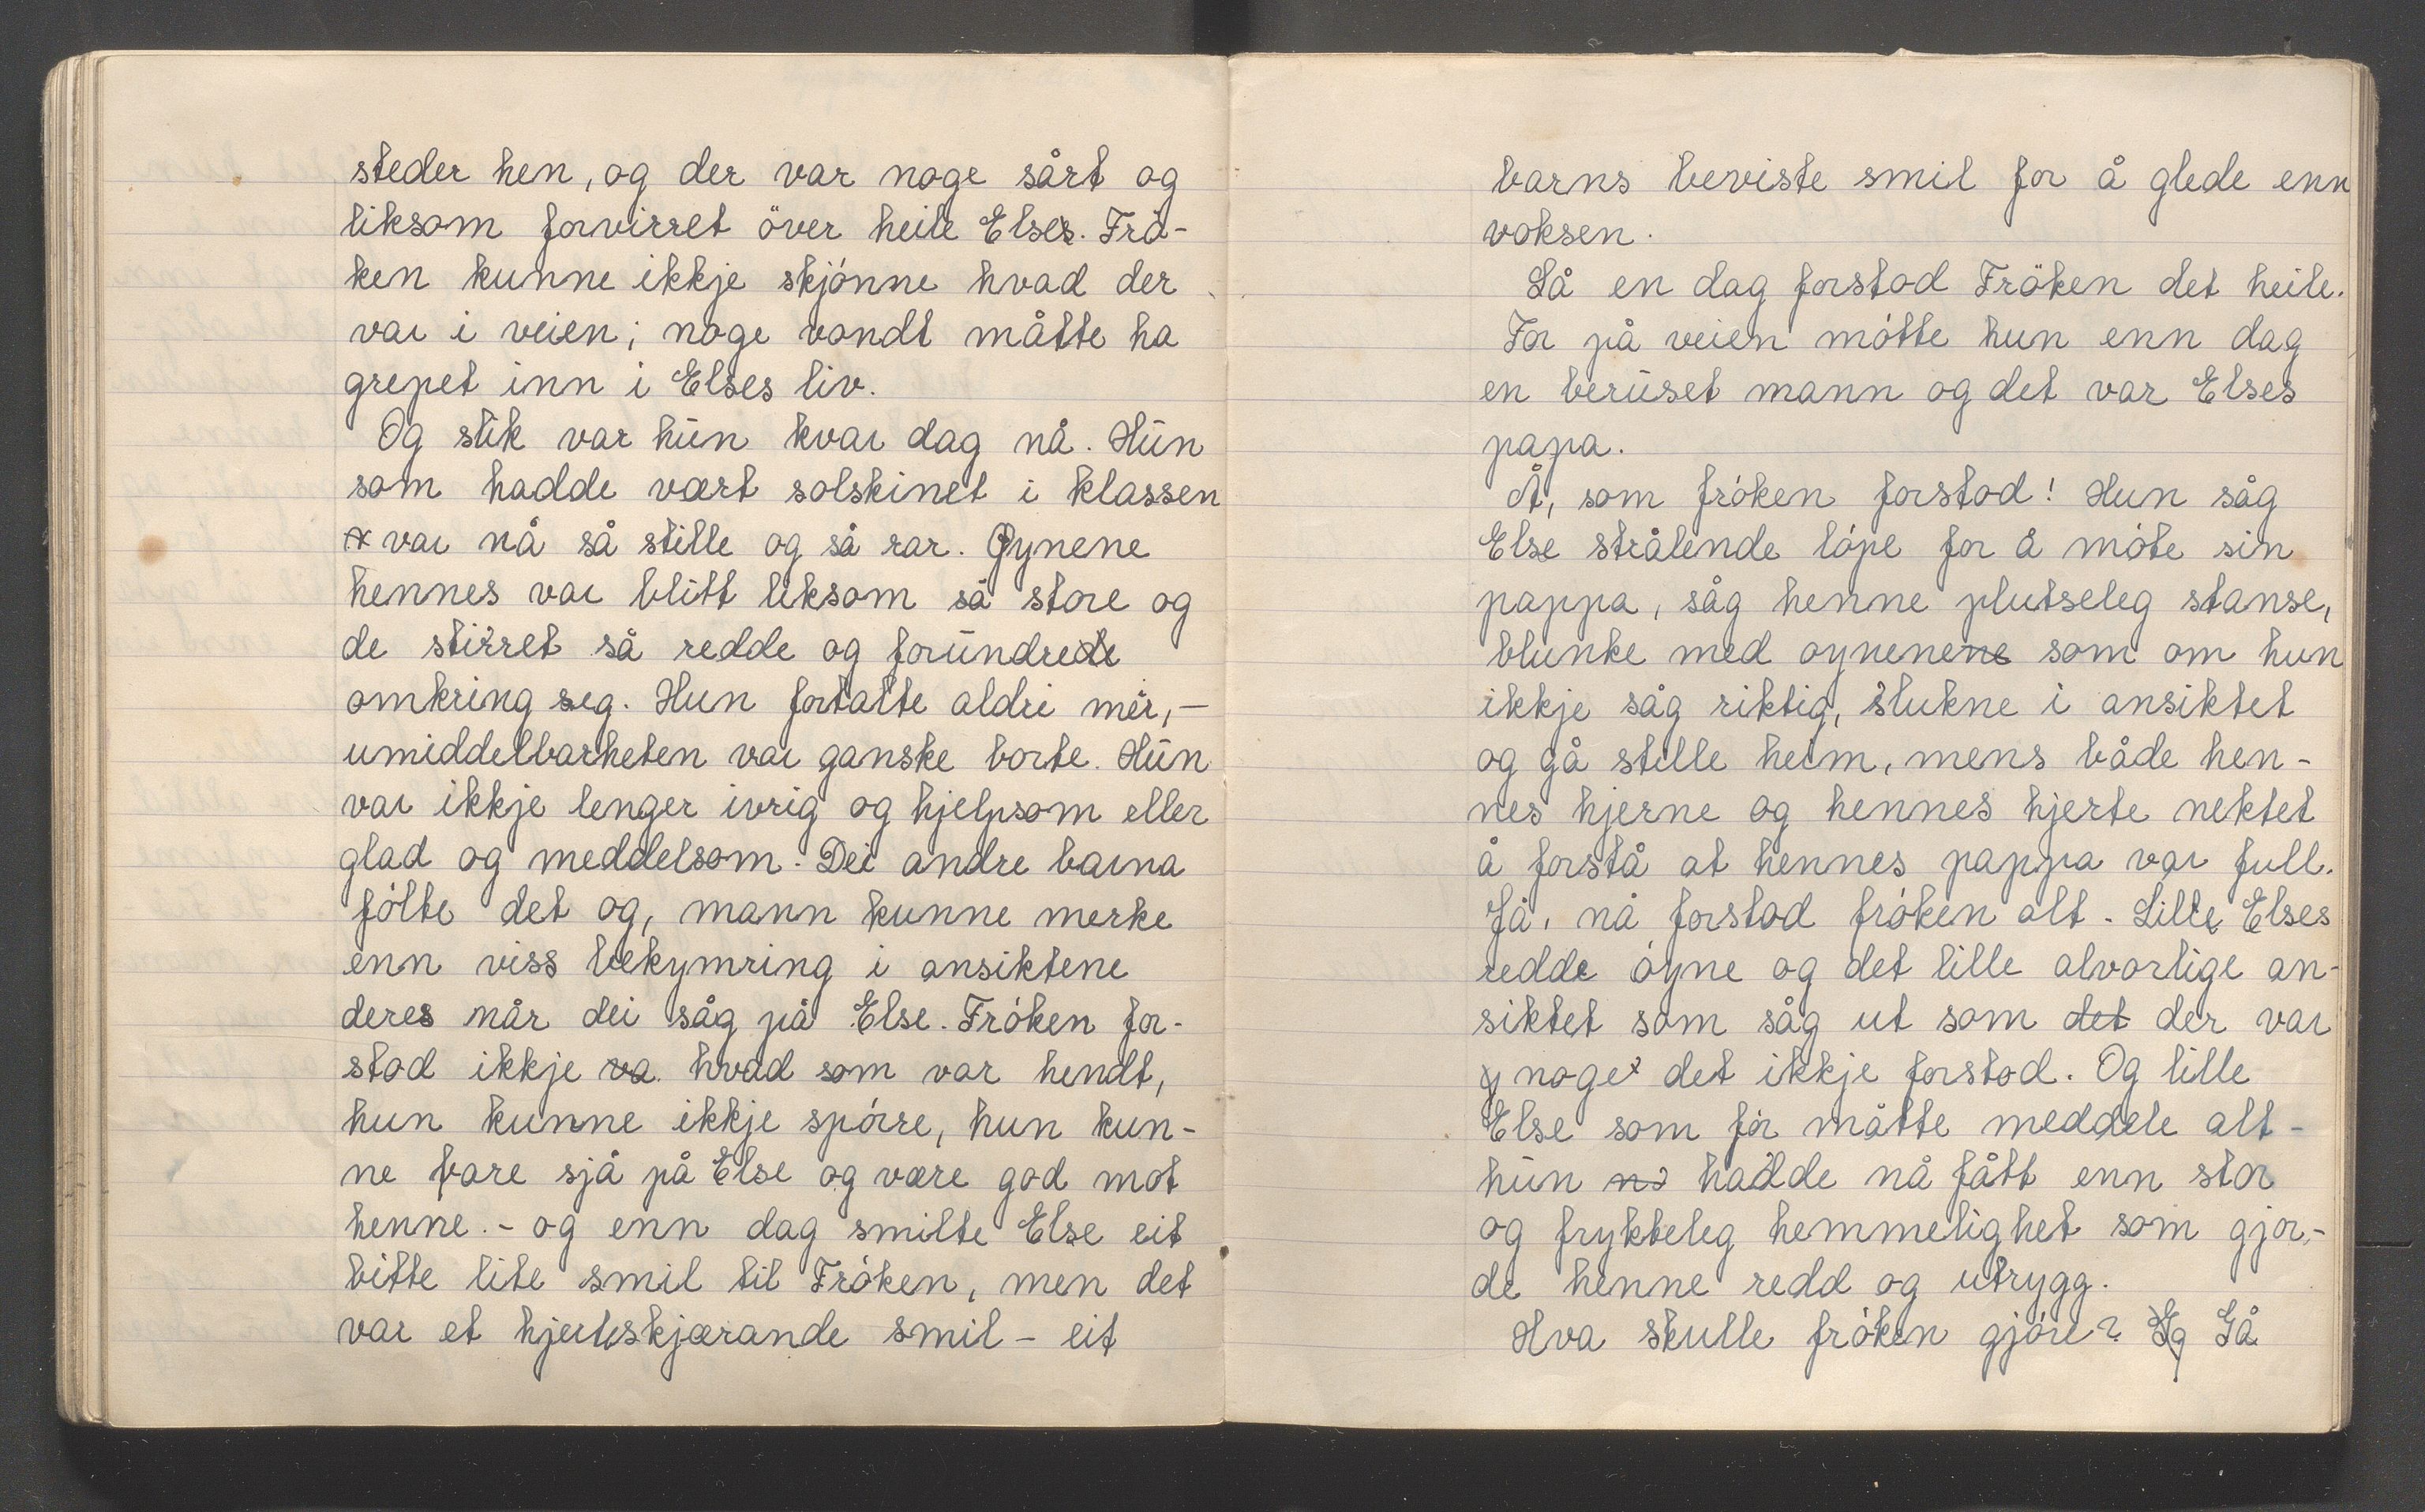 steder hen, og der var noge sårt og
liksom forvirret över heile Elses. Frö-
ken kunne ikkje skjónne hvad der
var i veien; noge vondt måtte ha
grepet inn i Elses liv.
Og slik var hūn kvar dag nå. Hūn
som hadde vært solskinet i klassen
var nå så stille og så rar. Øynene
hennes var blitt liksom så store og
de stirret så redde og forūndrede
omkring seg. Hun fortalte aldri mér, —
umiddelbarheten var ganske borte. Hūn
var ikkje lenger ivrig og hjelpsom eller
glad og meddelsom. Dei andre barna
fólte det og, mann kunne merke
enn viss bekymring i ansiktene
deres når dei såg på Else. Fróken for-
stod ikkje va hvad som var hendt,
hun kunne ikkje spórre, hun kun-
ne bare sjå på Else og være god mot
henne. - og enn dag smilte Else eit
bitte lite smil til Fróken, men det
var et hjerteskjærande smil - eit
barns beviste smil for å glede enn
voksen.
Så en dag forstod Fröken det heile.
For på veien mótte hun enn dag
en berūset mann og det var Elses
papa.
Å, som fróken forstod! Hun såg
Else strålende lópe for å móte sin
pappa, såg henne plutseleg stanse,
blunke med oynenene som om hun
ikkje såg riktig, slukne i ansiktet
og gå stille heim, mens både hen-
nes hjerne og hennes hjerte nektet
å forstå at hennes pappa var full.
Jå, nå forstod fróken alt. Lille Elses
redde óyne og det lille alvorlige an-
siktet som såg ut som det der var
noget det ikkje forstod. Og lille
Else som fór måtte meddele alt -
hūn nå hadde nå fått enn stor
og frykteleg hemmelighet som gjor-
de henne redd og utrygg.
Hva skulle fróken gjóre? Gå